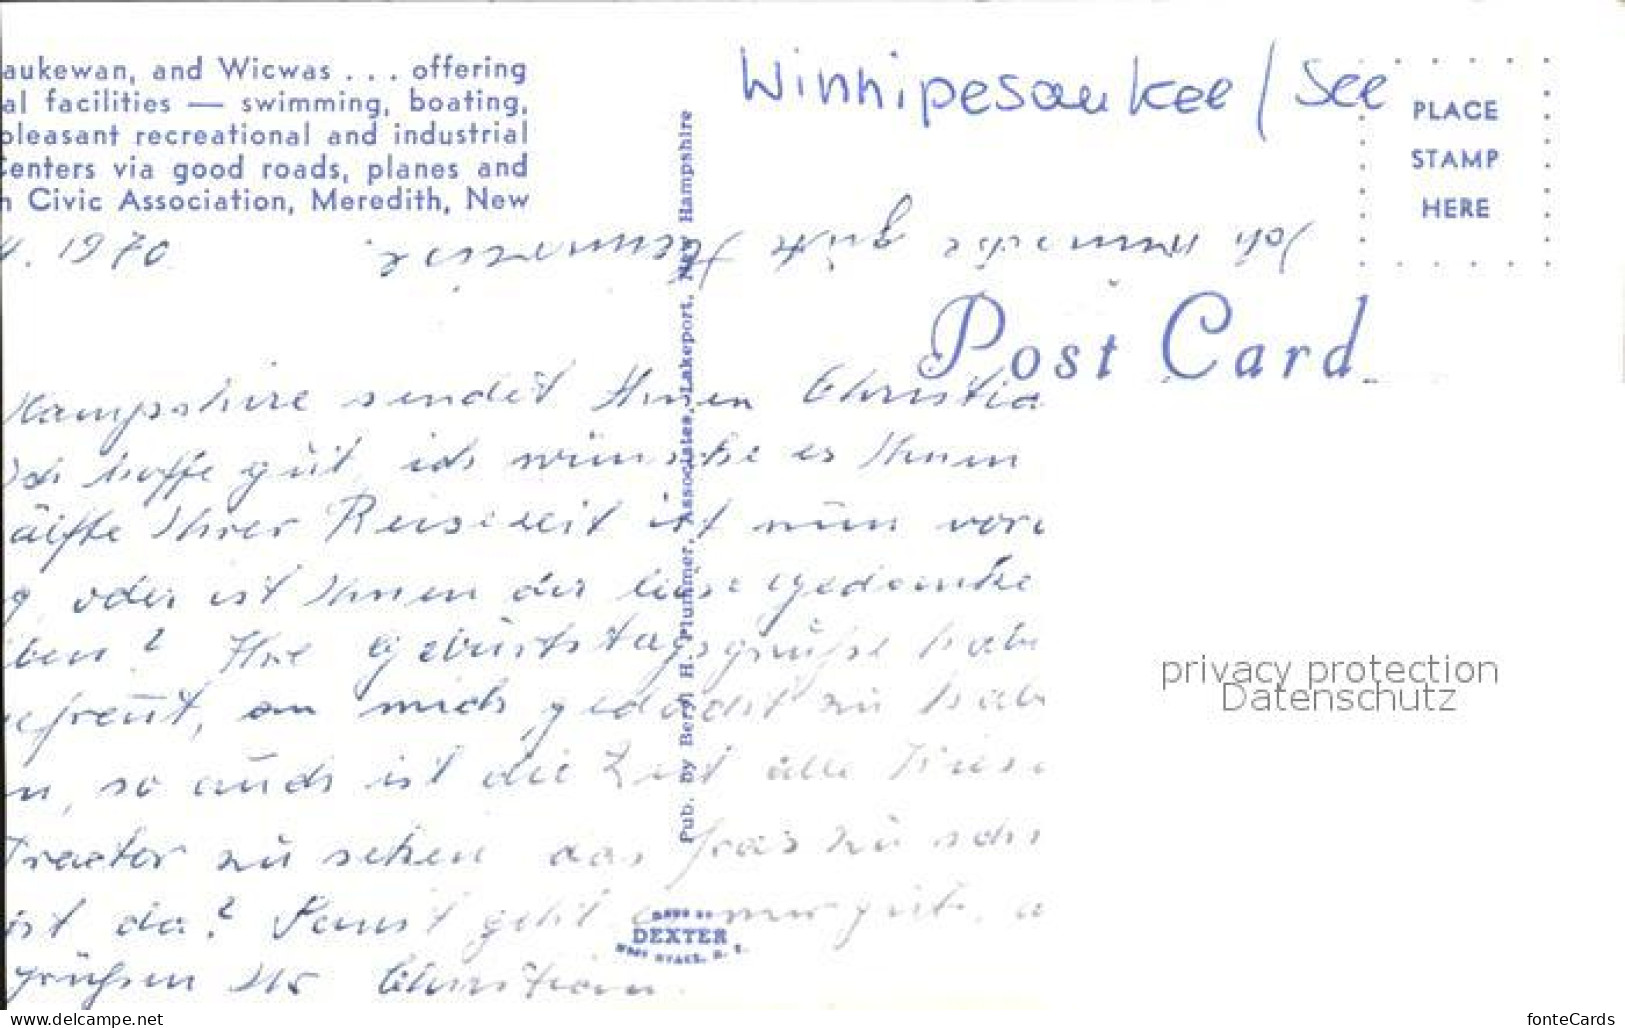 aukewan, and Wicwas . . . offering
al facilities — swimming, boating,
pleasant recreational and industrial
enters via good roads, planes and
n Civic Association, Meredith, New
4. 1970
Winnipesaukee / See
PLACE
STAMP
HERE
Ich wünsche gute Heimreise.
Post Card
Hampshire sendet Ihnen Christia
Ich hoffe gut, ich wünsche es Ihnen
älfte Ihrer Reisezeit ist nun vor
g oder ist Ihnen der liebe gedanke
ben? Ihre Geburtstagsgrüße habe
gefreut, an mich gedacht zu habe
n, so auch ist die Zeit alle
Tractor zu sehen das Gras zu
ist da? Sonst geht es mir gut,
grüßen Ihr Christian.
Pub. by Beryl H. Plummer, Associates, Lakeport, New Hampshire
DEXTER
privacy protection
Datenschutz
www.delcampe.net
fonteCards